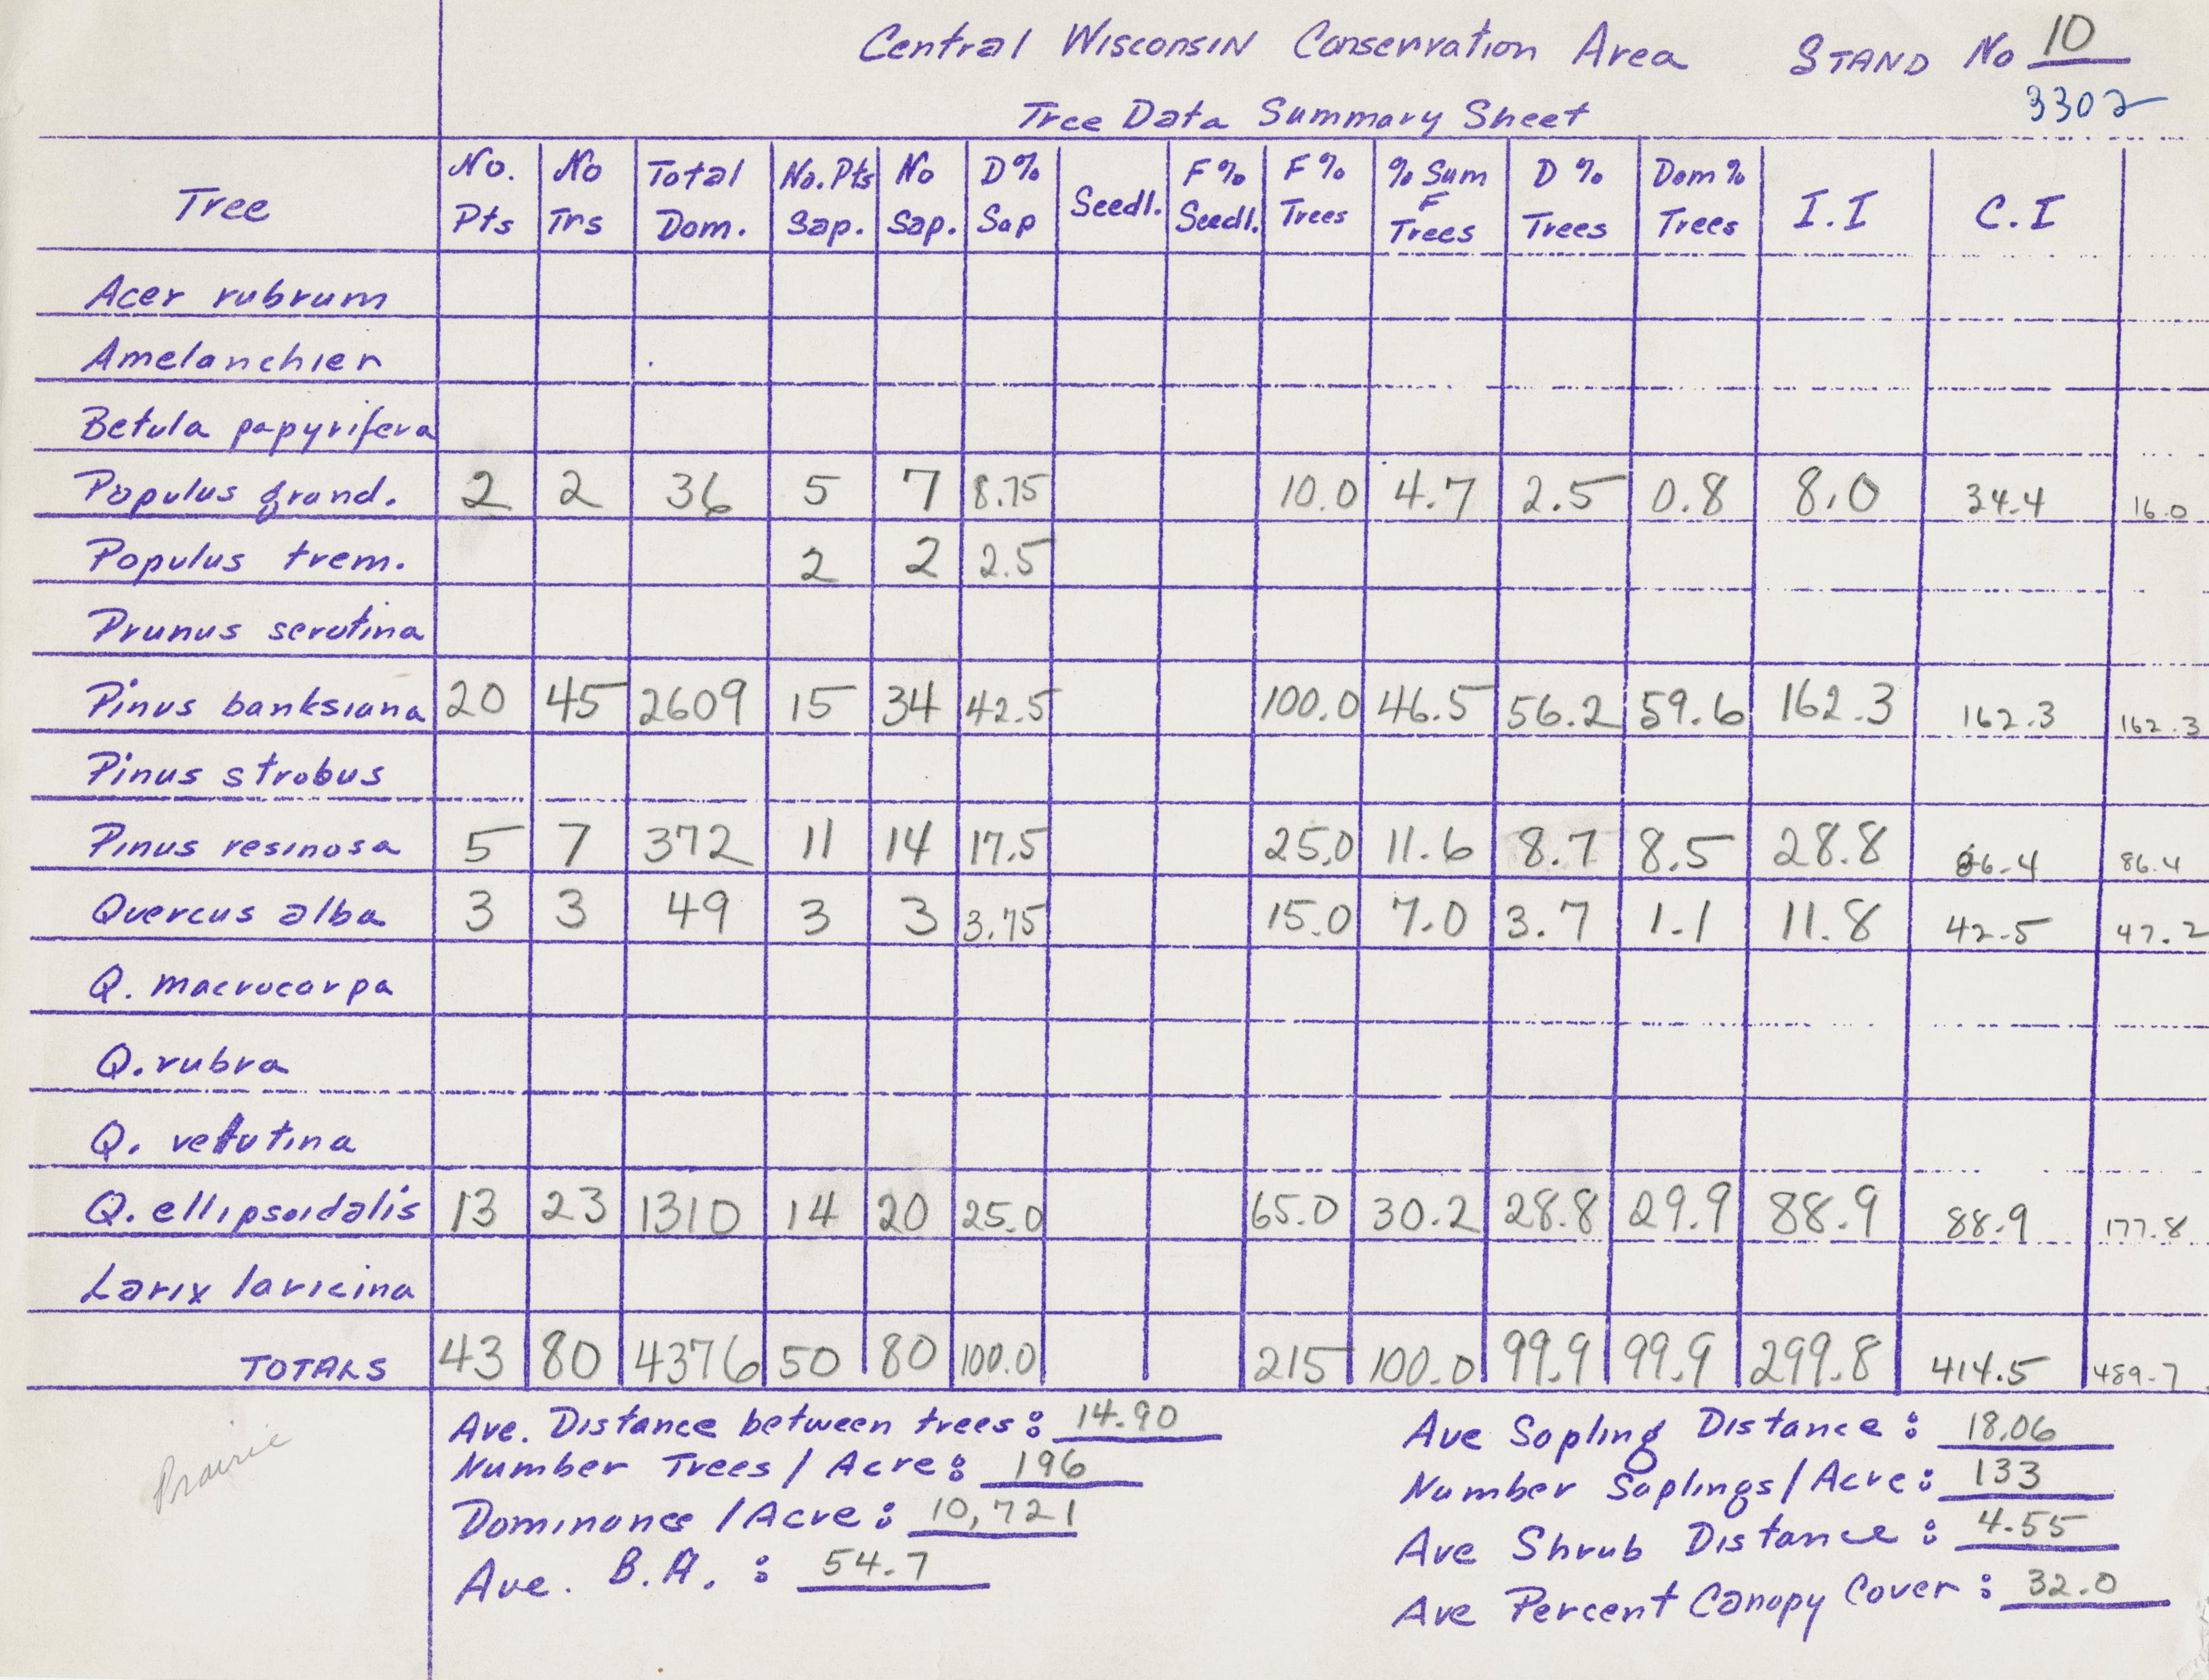 Central Wisconsin Conservation Area STAND No 10
3302
Tree Data Summary Sheet
Tree No. Pts No Trs Total Dom. No. Pts Sap. No Sap. D% Sap Seedl. F% Seedl. F% Trees % Sum F Trees D % Trees Dom % Trees I.I C.I
Acer rubrum
Amelanchier
Betula papyrifera
Populus grand. 2 2 36 5 7 8.75 10.0 4.7 2.5 0.8 8.0 34.4 16.0
Populus trem. 2 2 2.5
Prunus serotina
Pinus banksiana 20 45 2609 15 34 42.5 100.0 46.5 56.2 59.6 162.3 162.3 162.3
Pinus strobus
Pinus resinosa 5 7 372 11 14 17.5 25.0 11.6 8.7 8.5 28.8 86.4 86.4
Quercus alba 3 3 49 3 3 3.75 15.0 7.0 3.7 1.1 11.8 42.5 47.2
Q. macrocarpa
Q. rubra
Q. velutina
Q. ellipsoidalis 13 23 1310 14 20 25.0 65.0 30.2 28.8 29.9 88.9 88.9 177.8
Larix laricina
TOTALS 43 80 4376 50 80 100.0 215 100.0 99.9 99.9 299.8 414.5 489.7
Ave. Distance between trees: 14.90
Number Trees / Acre: 196
Dominance / Acre: 10,721
Ave. B.A. : 54.7
Ave Sapling Distance: 18.06
Number Saplings / Acre: 133
Ave Shrub Distance: 4.55
Ave Percent Canopy Cover: 32.0
Prairie